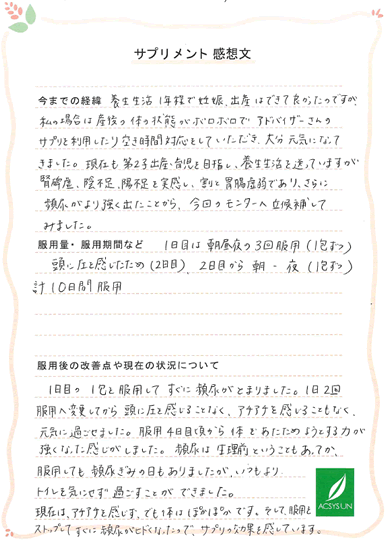 サプリメント 感想文
今までの経緯 養生生活1年程で妊娠、出産はできて良かったのですが、
私の場合は産後の体の状態がボロボロで アドバイザーさんの
サプリを利用したり 空き時間対応をしていただき、大分元気になって
きました。現在も第2子出産・育児を目指し、養生生活を送っていますが
腎虚、陰不足、陽不足を実感し、割と胃腸虚弱であり、さらに
頻尿がより強く出たことから、今回のモニターへ立候補して
みました。
服用量・服用期間など 1日目は朝昼夜の3回服用(1包ずつ)
頭に圧を感じたため(2日目)、2日目から 朝-夜(1包ずつ)
計10日間服用
服用後の改善点や現在の状況について
1日目の1包を服用してすぐに頻尿がとまりました。1日2回
服用へ変更してから頭に圧を感じることなく、アチアチを感じることもなく、
元気に過ごせました。服用4日目頃から体をあたためようとする力が
強くなった感じがしました。頻尿は生理前ということもあってか、
服用しても頻尿ぎみの日もありましたが、いつもより
トイレを気にせず過ごすことができました。
現在は、アチアチを感じず、でも体はぽかぽかです。そして、服用を
ストップしてすぐに頻尿がひどくなったので、サプリの効果を感じています。
ACSYSUN